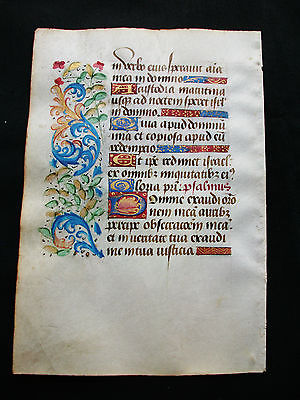 in verbo eius speravit aīa
mea in domino
A custodia matutina
usqȝ ad noctem speret isrl
in domino.
Quia apud dominū
mīa et copiosa apud eū
redemptio
Et ipse redimet israel
ex omnibȝ iniquitatibȝ ei⁹
Gloria pri. psalmus
Domine exaudi orōnem
meā auribȝ
percipe obsecrationem meā
in veritate tua exaudi
me in tua iusticia